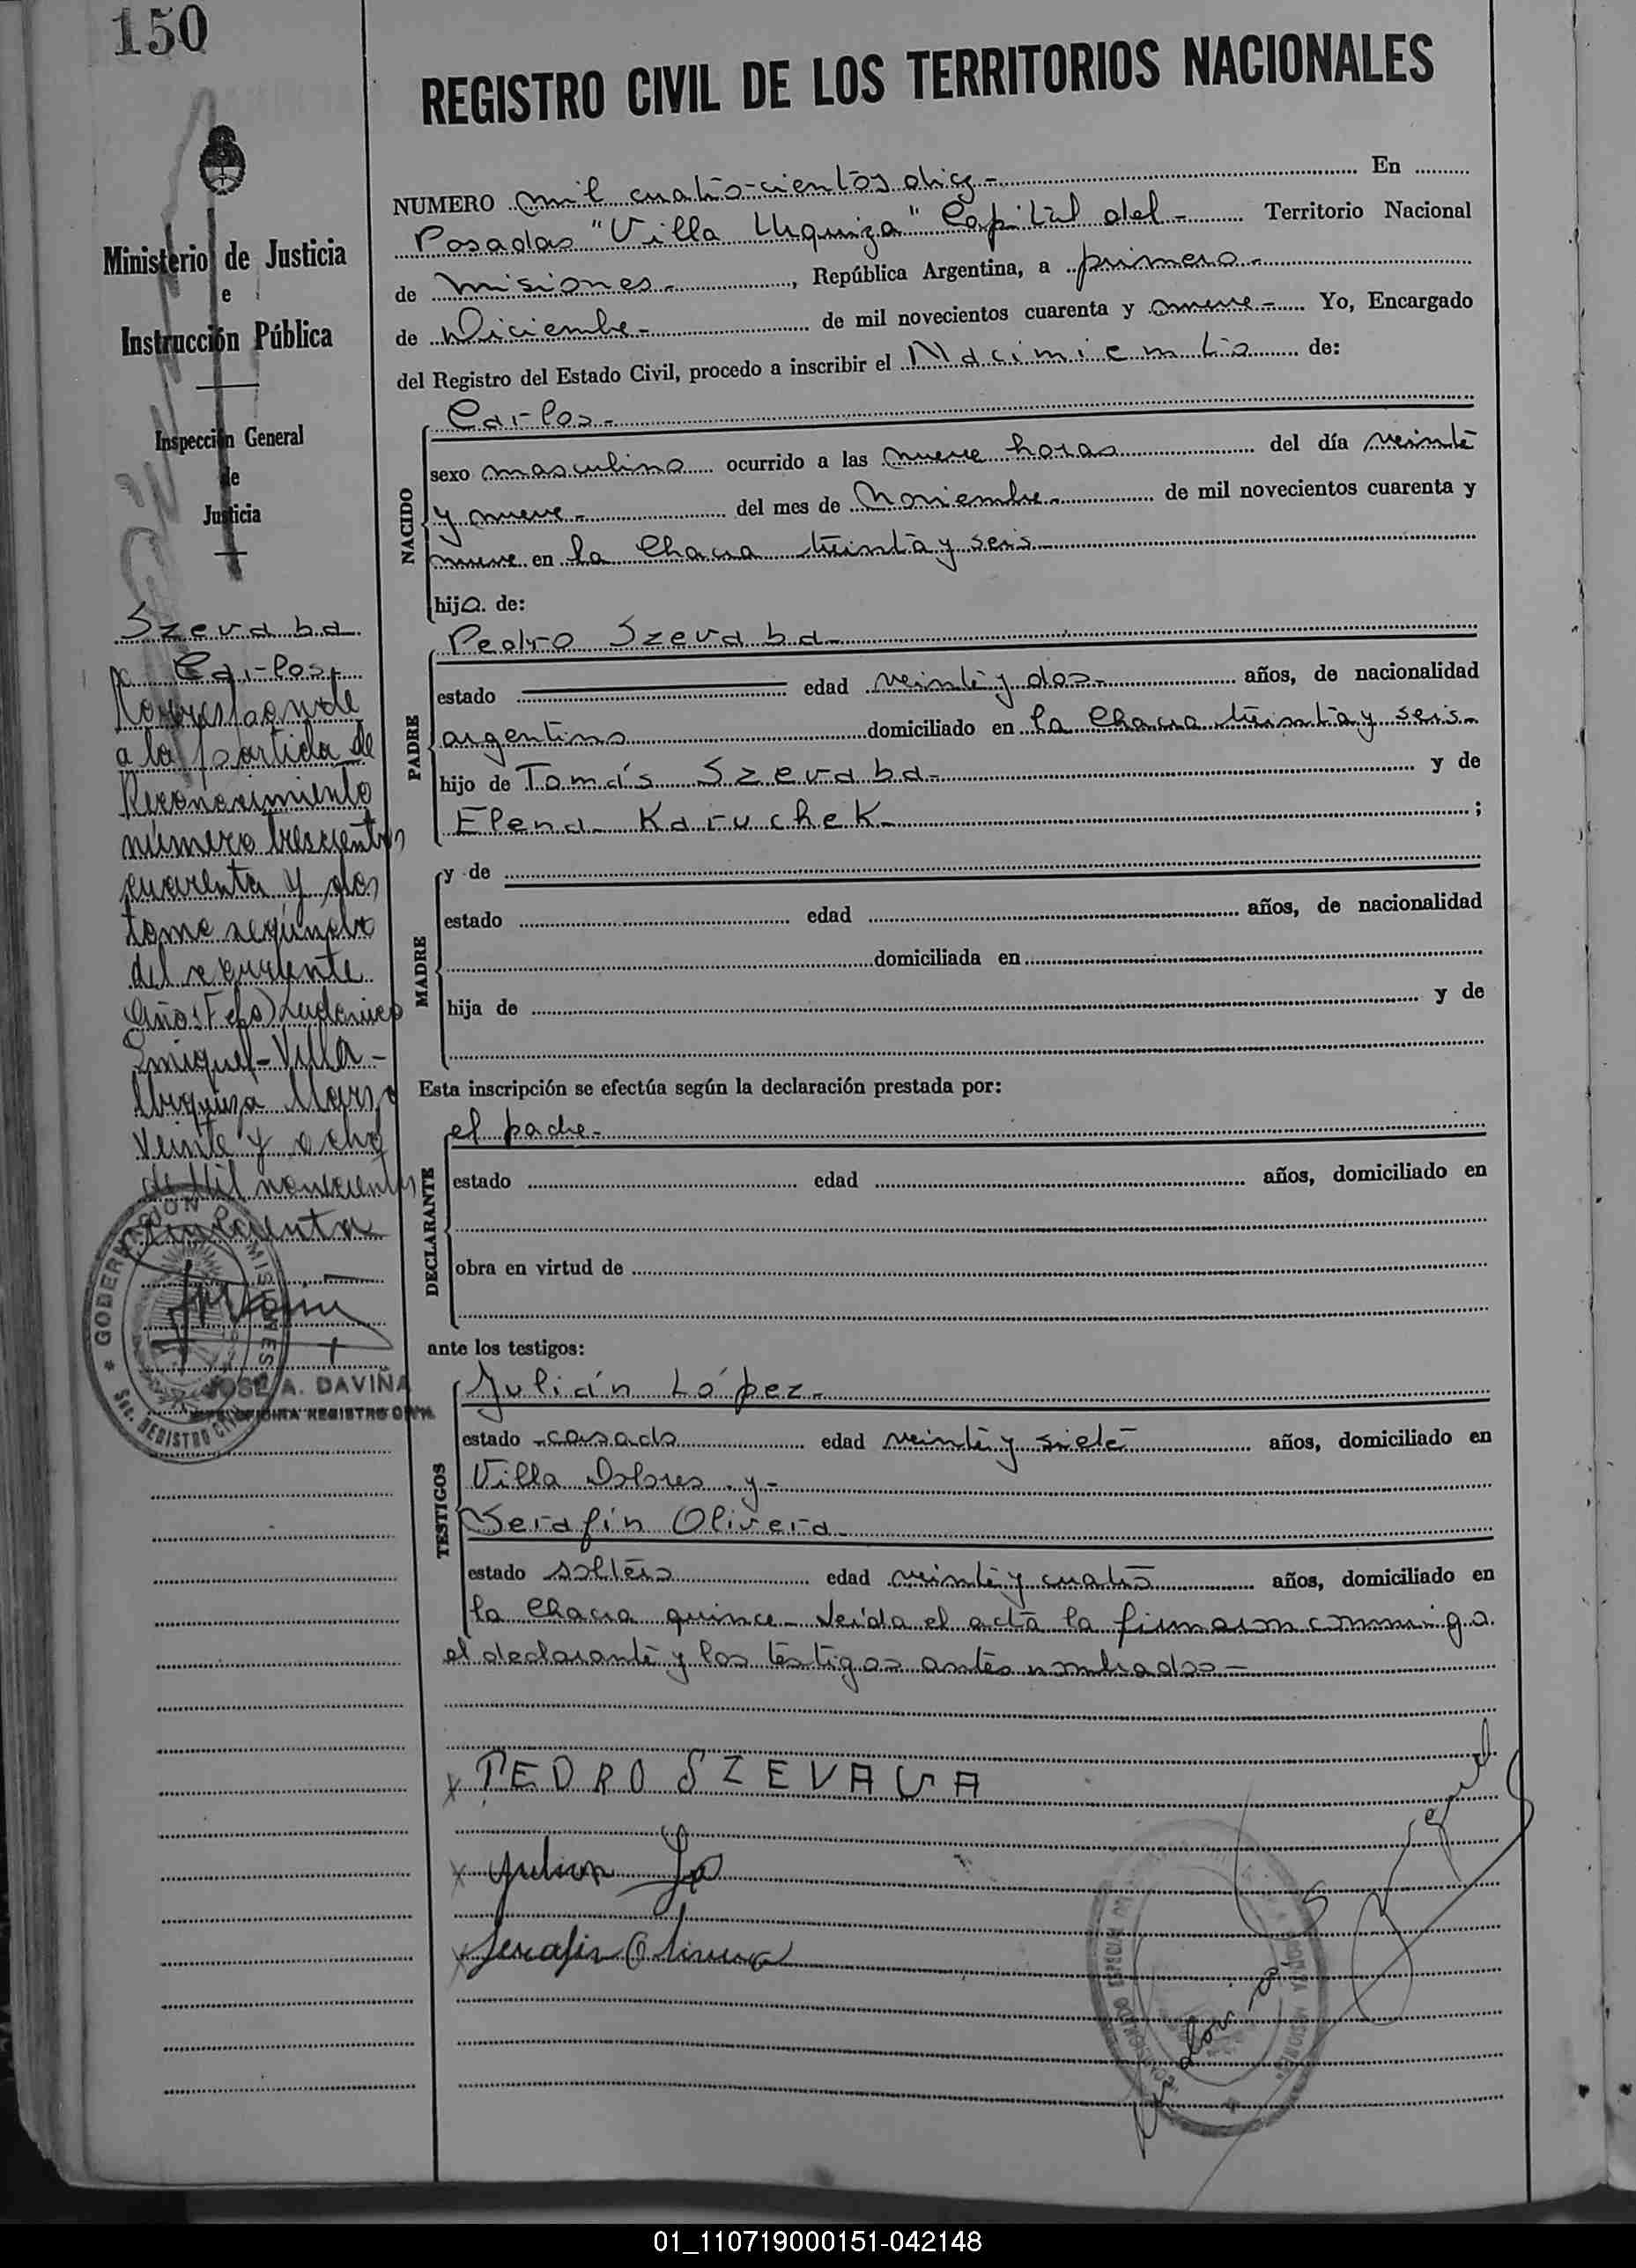 150
REGISTRO CIVIL DE LOS TERRITORIOS NACIONALES
Ministerio de Justicia
e
Instrucción Pública
Inspección General
de
Justicia
Szevaba
Carlos
Corresponde
a la partida de
Reconocimiento
número trescientos
cuarenta y dos
tomo segundo
del
Villa
Urquiza Marzo
veinte y ocho
de Mil novecientos
cincuenta
GOBERNACION DE MISIONES
Sec. REGISTRO CIVIL
JOSE A. DAVIÑA
JEFE OFICINA REGISTRO CIVIL
NUMERO mil cuatro-cientos diez - En
Posadas "Villa Urquiza" Capital del - Territorio Nacional
de Misiones - , República Argentina, a primero -
de Diciembre - de mil novecientos cuarenta y nueve - Yo, Encargado
del Registro del Estado Civil, procedo a inscribir el Nacimiento de:
NACIDO
Carlos -
sexo masculino ocurrido a las nueve horas del día veinte
y nueve - del mes de Noviembre - de mil novecientos cuarenta y
nueve en la Chacra treinta y seis
hijo de:
PADRE
Pedro Szevaba
estado edad veinte y dos - años, de nacionalidad
argentino domiciliado en la Chacra treinta y seis -
hijo de Tomás Szevaba - y de
Elena Karuchek - ;
MADRE
y de
estado edad años, de nacionalidad
domiciliada en
hija de y de
Esta inscripción se efectúa según la declaración prestada por:
DECLARANTE
el padre -
estado edad años, domiciliado en
obra en virtud de
ante los testigos:
TESTIGOS
Julián López -
estado casado edad veinte y siete años, domiciliado en
Villa Dolores y -
Serafín Olivera
estado soltero edad veinte y cuatro años, domiciliado en
la Chacra quince - Leída el acta la firmaron conmigo
el declarante y los testigos antes nombrados -
x PEDRO SZEVAVA
x Julian
x Serafin Olivera
01_110719000151-042148